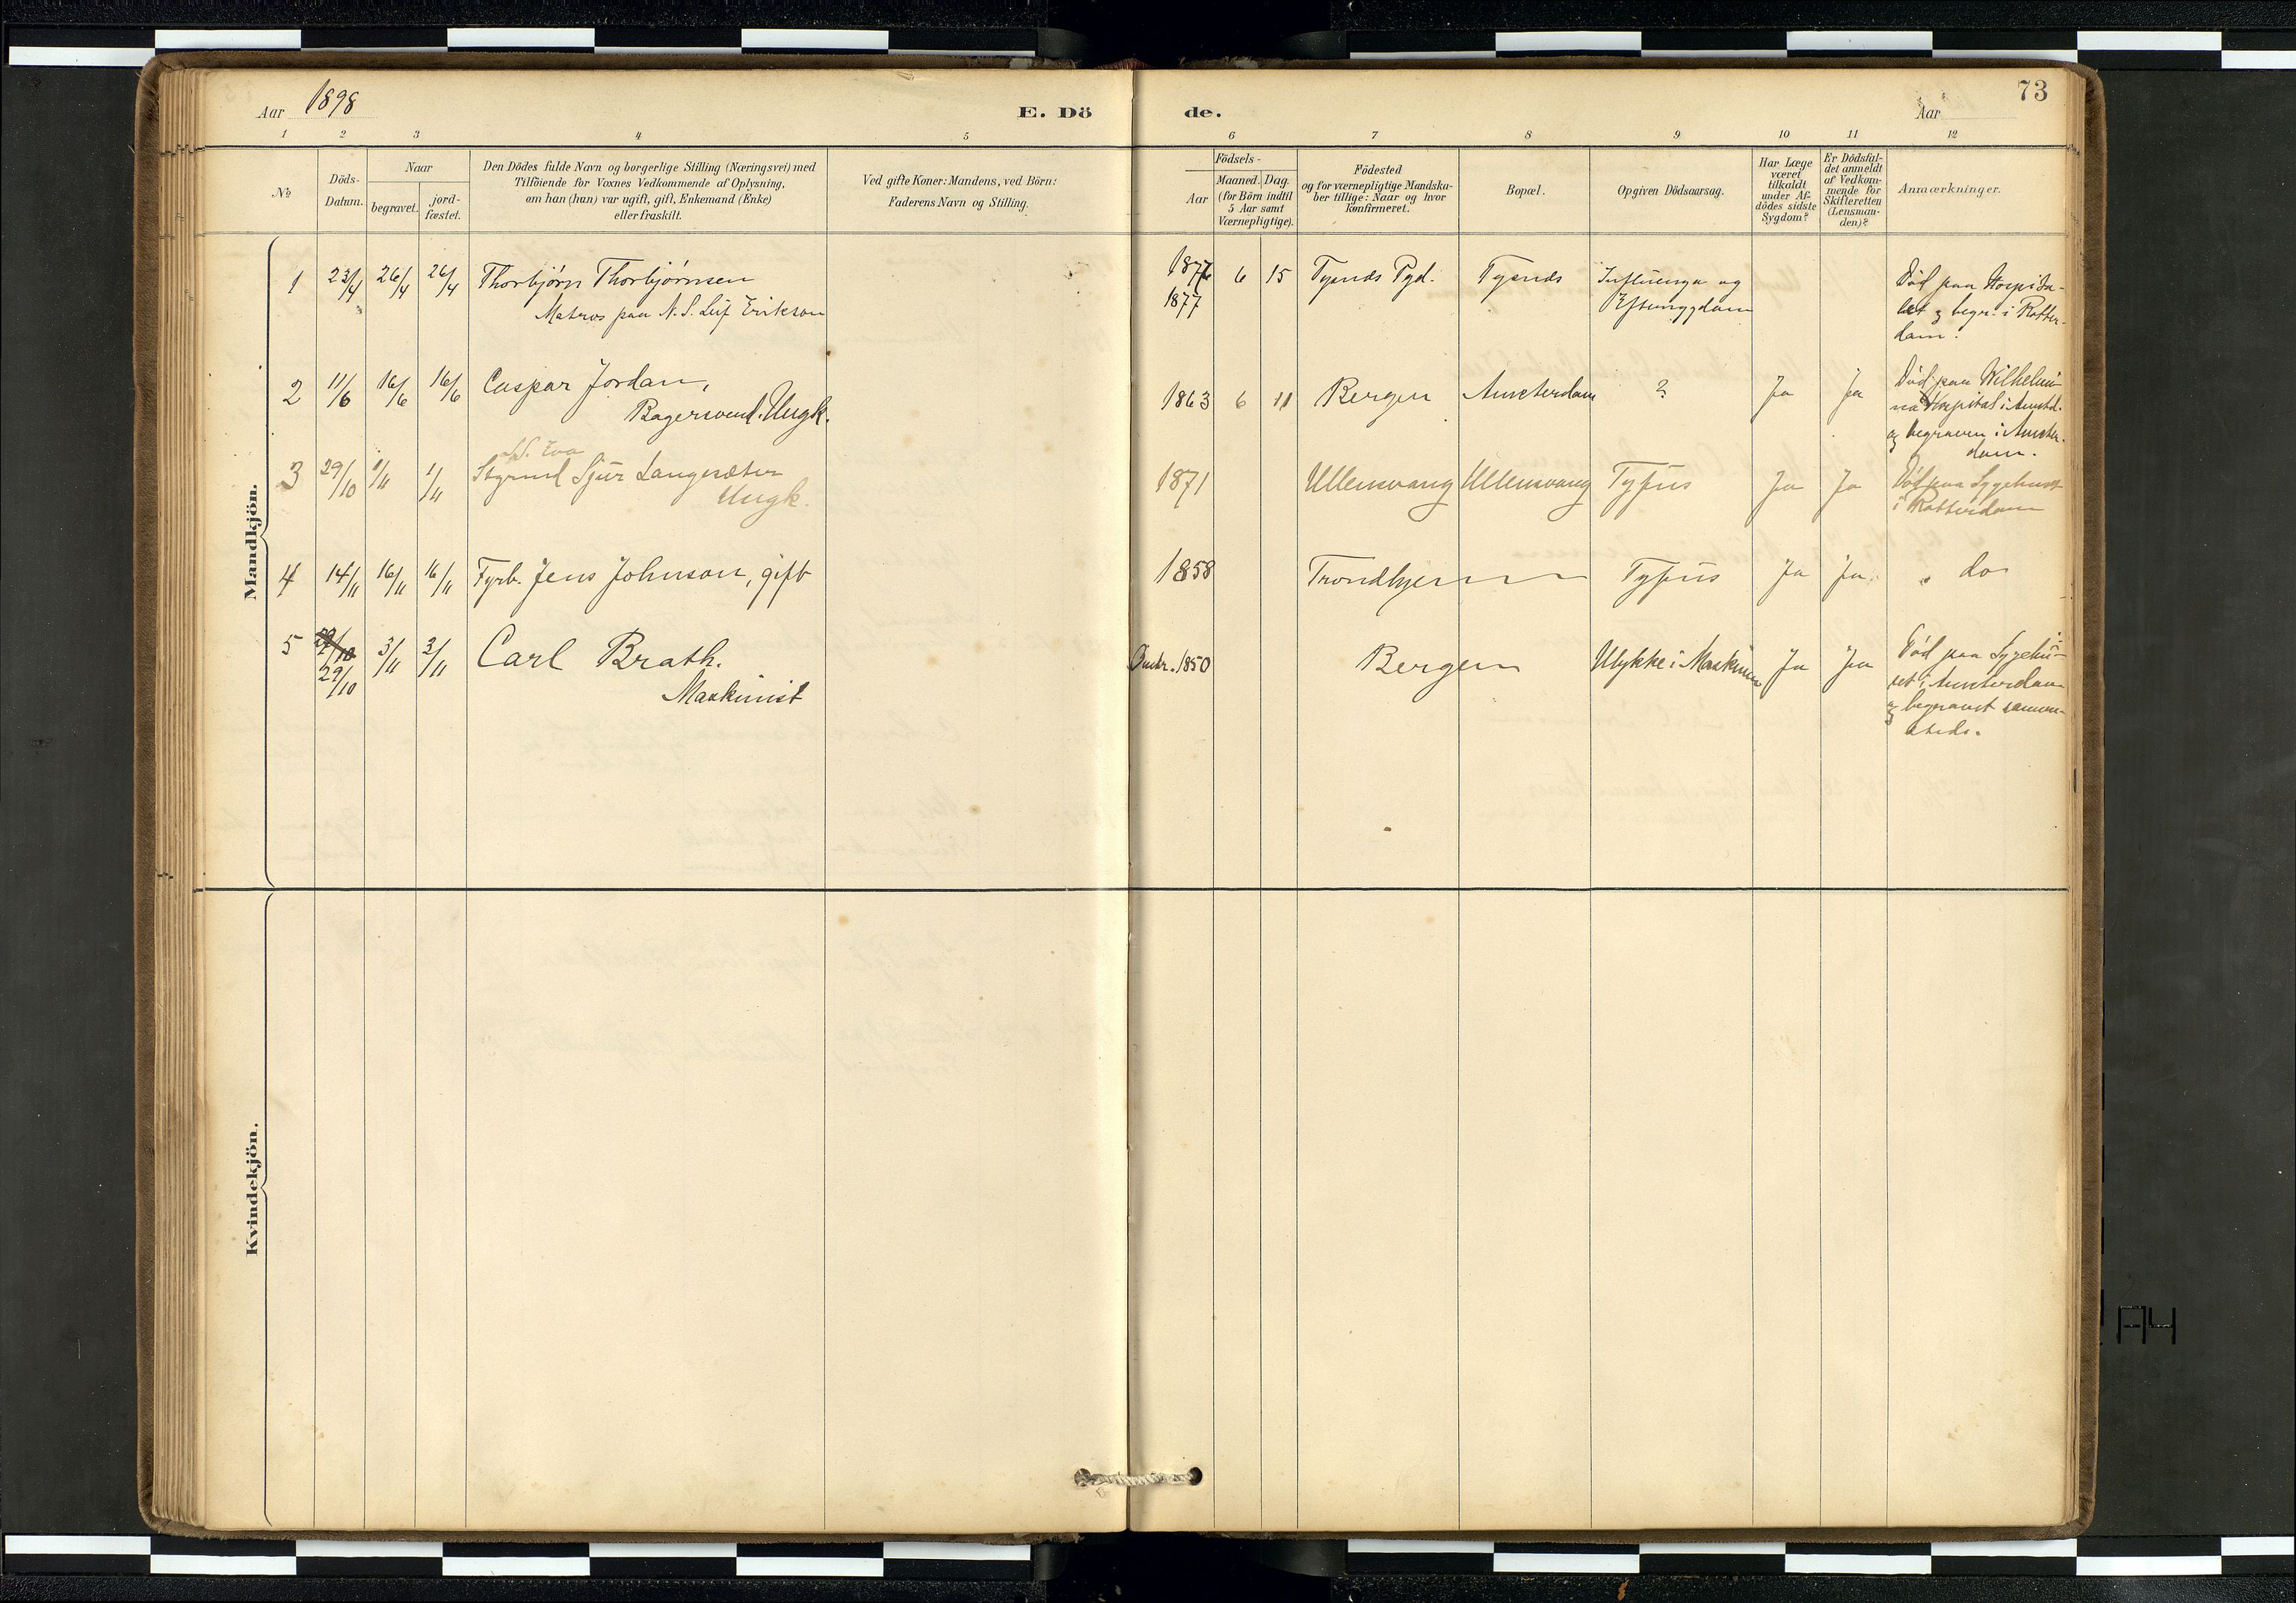 Aar 1898
E. Dö
de.
Aar
73
1 2 3 4 5 6 7 8 9 10 11 12
No
Döds-
Datum.
Naar
begravet.
jord-
fæstet.
Den Dödes fulde Navn og borgerlige Stilling (Næringsvei) med
Tilföiende for Voxnes Vedkommende af Oplysning,
om han (hun) var ugift, gift, Enkemand (Enke)
eller fraskilt.
Ved gifte Koner: Mandens, ved Börn:
Faderens Navn og Stilling.
Födsels-
Aar
Maaned. Dag.
(for Börn indtil
5 Aar samt
Værnepligtige).
Födested
og for værnepligtige Mandska-
ber tillige: Naar og hvor
konfirmeret.
Bopæl.
Opgiven Dödsaarsag.
Har Læge
været
tilkaldt
under Af-
dödes sidste
Sygdom?
Er Dödsfal-
det anmeldt
af Vedkom-
mende for
Skifteretten
(Lensman-
den)?
Anmærkninger.
Mandkjön.
1 23/4 26/4 26/4 Thorbjörn Thorbjörnsen
Matros paa N. S. Leif Erikson
1876 6 15 Tysnæs Pgd. Tysnæs Influenza og
1877
Død paa Hospita-
let og begr. i Rotter-
dam.
2 11/6 16/6 16/6 Caspar Jordan,
Bagersvend. Ungk.
1863 6 11 Bergen Amsterdam ? Ja Ja
Död paa Wilhelmi-
na Hospital i Amstd.
og begraven i Amster-
dam.
S. S. Eva
3 29/10 1/11 1/11 Styrmd Sjur Langesæter
Ungk.
1871 Ullensvang Ullensvang Tyfus Ja Ja
Död paa Sygehuset
i Rotterdam
4 14/11 16/11 16/11 Fyrb. Jens Johnson, gift
1858 Trondhjem Tyfus Ja Ja " do
5 29/10 3/11 3/11 Carl Brath.
29/10
Maskinist
Omtr. 1850 Bergen Ulykke i Maskinen Ja Ja
Död paa Sygehu-
set i Amsterdam
og begravet samme-
steds.
Kvindekjön.